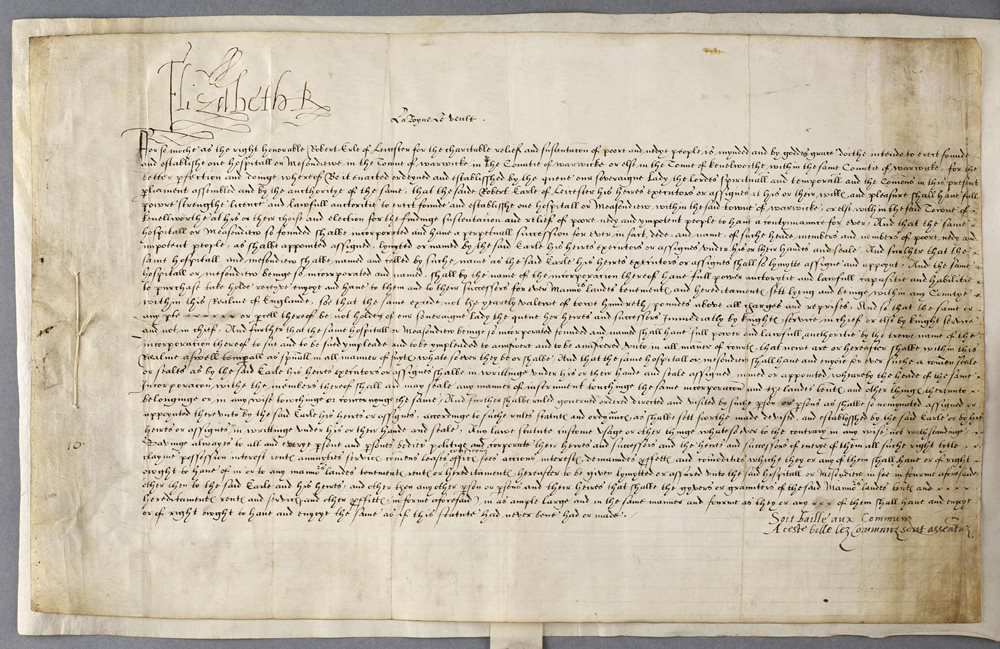 Elizabeth R
La Royne Le veult.
For so moche as the right honorable Robert Erle of Leicister for the charitable relief and sustentacon of poore and nedye people is mynded and by goddes grace dothe intende to erect founde
and establishe one hospitall or Mesondiewe in the Towne of warwicke in the Countie of warwicke or else in the Towne of kenelworthe within the same Countie of warwicke. for the
better and doinge whereof Be it enacted ordeyned and establisshed by the quene our soveraigne Lady the lordes spirituall and temporall and the Comons in this present
pliament assembled and by the aucthorytye of the same. That the saide Robert Earle of Leicester his heires executors or assignes at his or their will and pleasure shall haue full
power strenght licence and lawfull auctoritie to erect founde and establisshe one hospitall or Measondiew within the said towne of warwicke or else within the said Towne of
kenellworthe at his or theire choise and election for the findinge sustentacion and relief of poore nedy and ympotent people to haue a contynuance for ever. And that the same
hospitall or Mesondiew so founded shalbe incorporated and haue a perpetuall succession for ever in fact dede and name of suche heade members and nombers of poore nedy and
impotent people as shalbe appointed assigned lymyted or named by the said Earle his heires executors or assignes under his or their handes and seale. And further that the
same hospitall and mesondiew shalbe named and called by suche name as the said Earle his heires executors or assignes shall so lymytte assigne and appoynt. And the same
hospitall or mesondiew beinge so incorporated and named shall by the name of the incorporation thereof haue full power auctorytie and lawfull capasitie and habilitie
to purchase take holde receyve enjoye and haue to them and to their Successors for ever Mannors landes tenementes and hereditamentes sett lyeng and beinge within any Countye
within this Realme of Englande, so that the same excede not the yearly valewe of towe hundreth poundes above all charges and reprises. And so that the same or
any or pcell thereof be not holden of our soveraigne lady the quene her heires and successors immediatly by knightes service in chief or else by knight service
and not in chief. And further that the same hospitall or Measondiew beinge so incorporated founded and named shall haue full power and lawfull authoritie by the trewe name of the
incorporation thereof to sue and to be sued ympleade and to be ympleaded to answere and to be answered unto in all maner of courtes that nowe are or hereafter shalbe within this
Realme aswell tempall as spuall in all maner of suytes whatsoever they be or shalbe. And that the same hospitall or misondiew shall haue and enjoie for ever suche a comen seale
or seales as by the said Earle his heires executors or assignes shalbe in writtinge under his or their hand and seale assigned named or appointed whereby the heade of the same
Incorporacon withe the members thereof shall and may seale any manner of instrument touchinge the same incorporacon and the landes tentes and other thinges thereunto
belonginge or in any wise touchinge or concerninge the same. And further shalbe ruled governed ordered directed and visited by suche pson or psons as shalbe so nominated assigned or
appoynted thereunto by the said Earle his heires or assignes. accordinge to suche rules statutes and ordynances as shalbe sett forthe made devised and establisshed by the said Earle or by his
heires or assignes in writtinge under his or their hande and seale. Any lawe statute custome usage or other thinge whatsoever to the contrary in any wise not withstandinge
Savinge alwayes to all and every psone and psones bodies politique and corporate their heires and successors and the heires and successors of everye of them all suche right tytle
clayme possession interest rentes annuyties services comens leases offices fees actions interestes demaundes and comodities whiche they or any of them shall haue or of right
owght to haue of in or to any mannors landes tenementes rentes or hereditamentes hereafter to be given lymytted or assured unto the said hospitall or Mesondiew in fourme aforesaide
other then to the said Earle and his heires and other then any other pson or psons and their heires that shalbe the gyvers or graunters of the said Mannors landes tentes and
hereditamentes rentes and services and other in forme aforesaid, in as ample large and in the same manner and fourme as they or any of them shall haue and enjoye
or of right owght to haue and enjoye the same as if this statute had never bene had or made.
Soit baille aux Communs
A ceste bille lez Communs sont assentuz
10